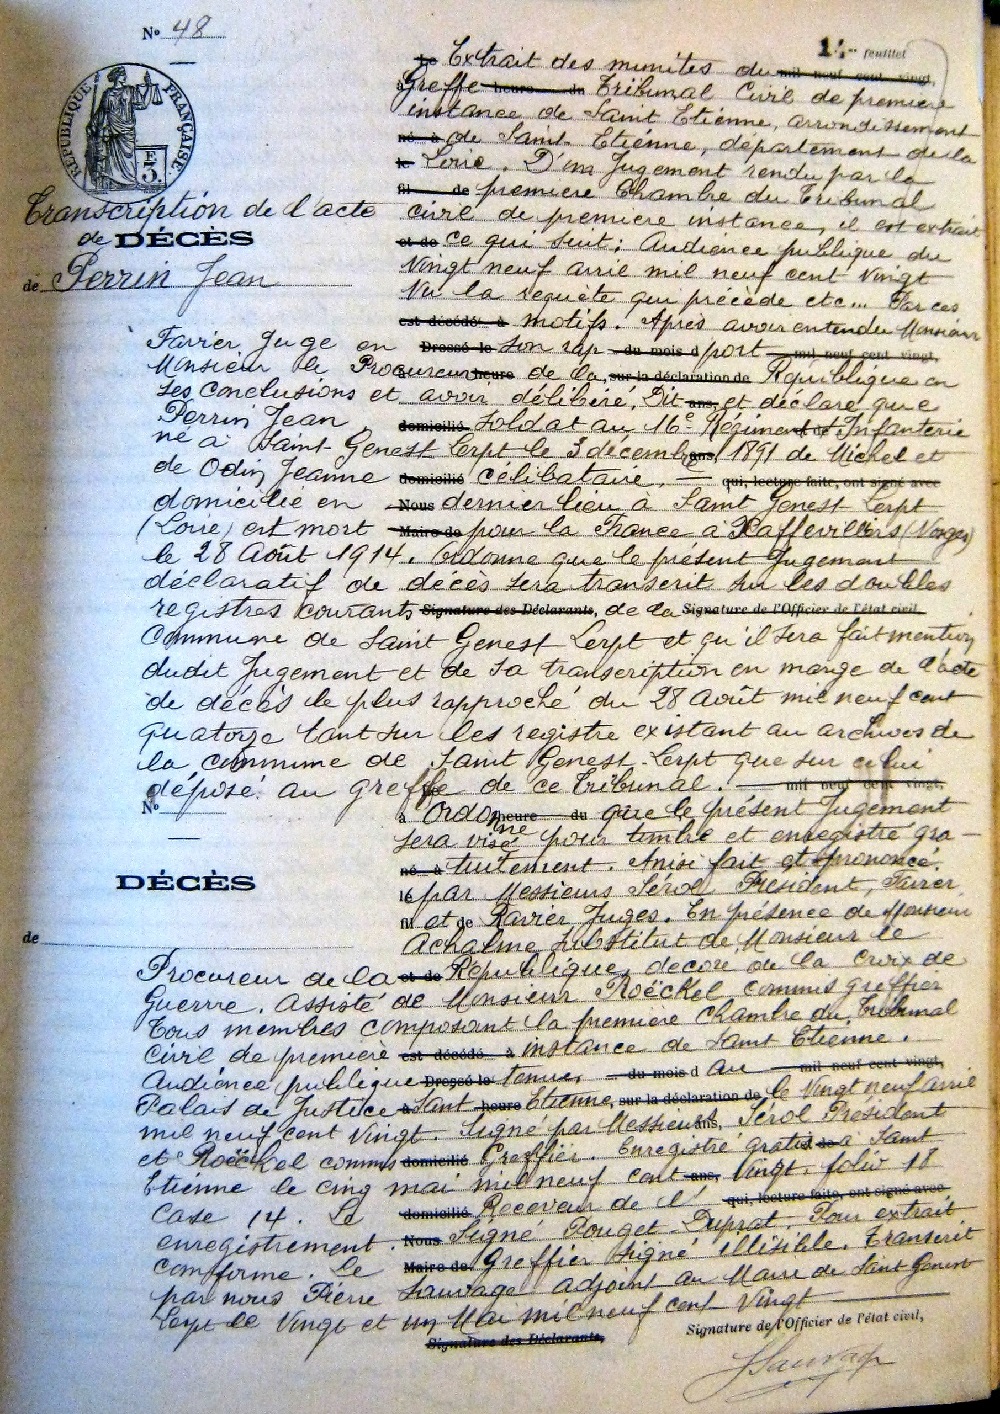 N° 48
1 feuillet
RÉPUBLIQUE FRANÇAISE.
E
3.
Transcription de l'acte
de DÉCÈS
de Perrin Jean
Le Extrait des minutes du mil neuf cent vingt,
Greffe heure du Tribunal Civil de première
instance de Saint Etienne, arrondissement
né à de Saint Etienne, département de la
le Loire. D'un Jugement rendu par la
fil de première Chambre du Tribunal
civil de première instance, il est extrait
et de ce qui suit: Audience publique du
Vingt neuf avril mil neuf cent vingt
Vu la requête qui précède etc... Par ces
est décédé à motifs. Après avoir entendu Monsieur
Favier Juge en Dressé le son rap du mois d port mil neuf cent vingt,
Monsieur le Procureur heure de la, sur la déclaration de République en
ses conclusions et avoir délibéré. Dit ans, et déclare que
Perrin Jean, domicilié soldat au 16e Régiment et d'Infanterie
né à Saint-Genest Lerpt le 3 décembre ans, 1891 de Michel et
de Odin Jeanne domicilié célibataire. — qui, lecture faite, ont signé avec
domicilié en Nous dernier lieu à Saint Genest Lerpt
(Loire) est mort Maire de pour la France à Xaffévillers (Vosges)
le 28 Août 1914. Ordonne que le présent Jugement
déclaratif de décès sera transcrit sur les doubles
registres courants Signature des Déclarants, de la Signature de l'Officier de l'état civil,
Commune de Saint Genest Lerpt et qu'il sera fait mention
dudit Jugement et de sa transcription en marge de l'acte
de décès le plus rapproché du 28 Août mil neuf cent
quatorze tant sur les registre existant au archives de
la commune de Saint Genest-Lerpt que sur celui
déposé au greffe de ce Tribunal. mil neuf cent vingt,
N°
à Ordonne heure du que le présent Jugement
sera visé pour timbre et enregistré gra-
né à tuitement. Ainsi fait et prononcé
DÉCÈS
le par Messieurs Sérol Président, Favier
fil et de Ravier Juges. En présence de Monsieur
de
Achalme Substitut de Monsieur le
Procureur de la et de République, décoré de la croix de
Guerre. Assisté de Monsieur Roëckel commis greffier
Tous membres composant la première chambre du Tribunal
civil de première est décédé à instance de Saint Etienne.
Audience publique Dressé le tenue, du mois d au mil neuf cent vingt,
Palais de Justice à Saint heure Etienne, sur la déclaration de le Vingt neuf avril
mil neuf cent vingt. Signé par Messieurs ans, Sérol Président
et Roëckel commis domicilié Greffier. Enregistré gratis de à Saint
Etienne le cinq mai mil neuf cent ans, vingt. folio 18
Case 14. Le domicilié Receveur de l' qui, lecture faite, ont signé avec
enregistrement. Nous Signé Pouget-Duprat. Pour extrait
conforme. Le Maire de Greffier signé illisible. Transcrit
par nous Pierre Sauvage adjoint au Maire de Saint Genest
Lerpt le Vingt et un Mai mil neuf cent Vingt
Signature des Déclarants,
Signature de l'Officier de l'état civil,
Sauvage